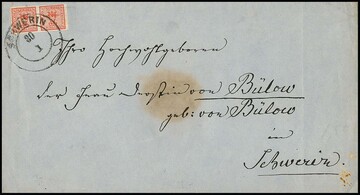 SCHWERIN
30
1
Ihro Hochwohlgeboren
der Frau Obristin von Bülow
geb: von Bülow
in
Schwerin.